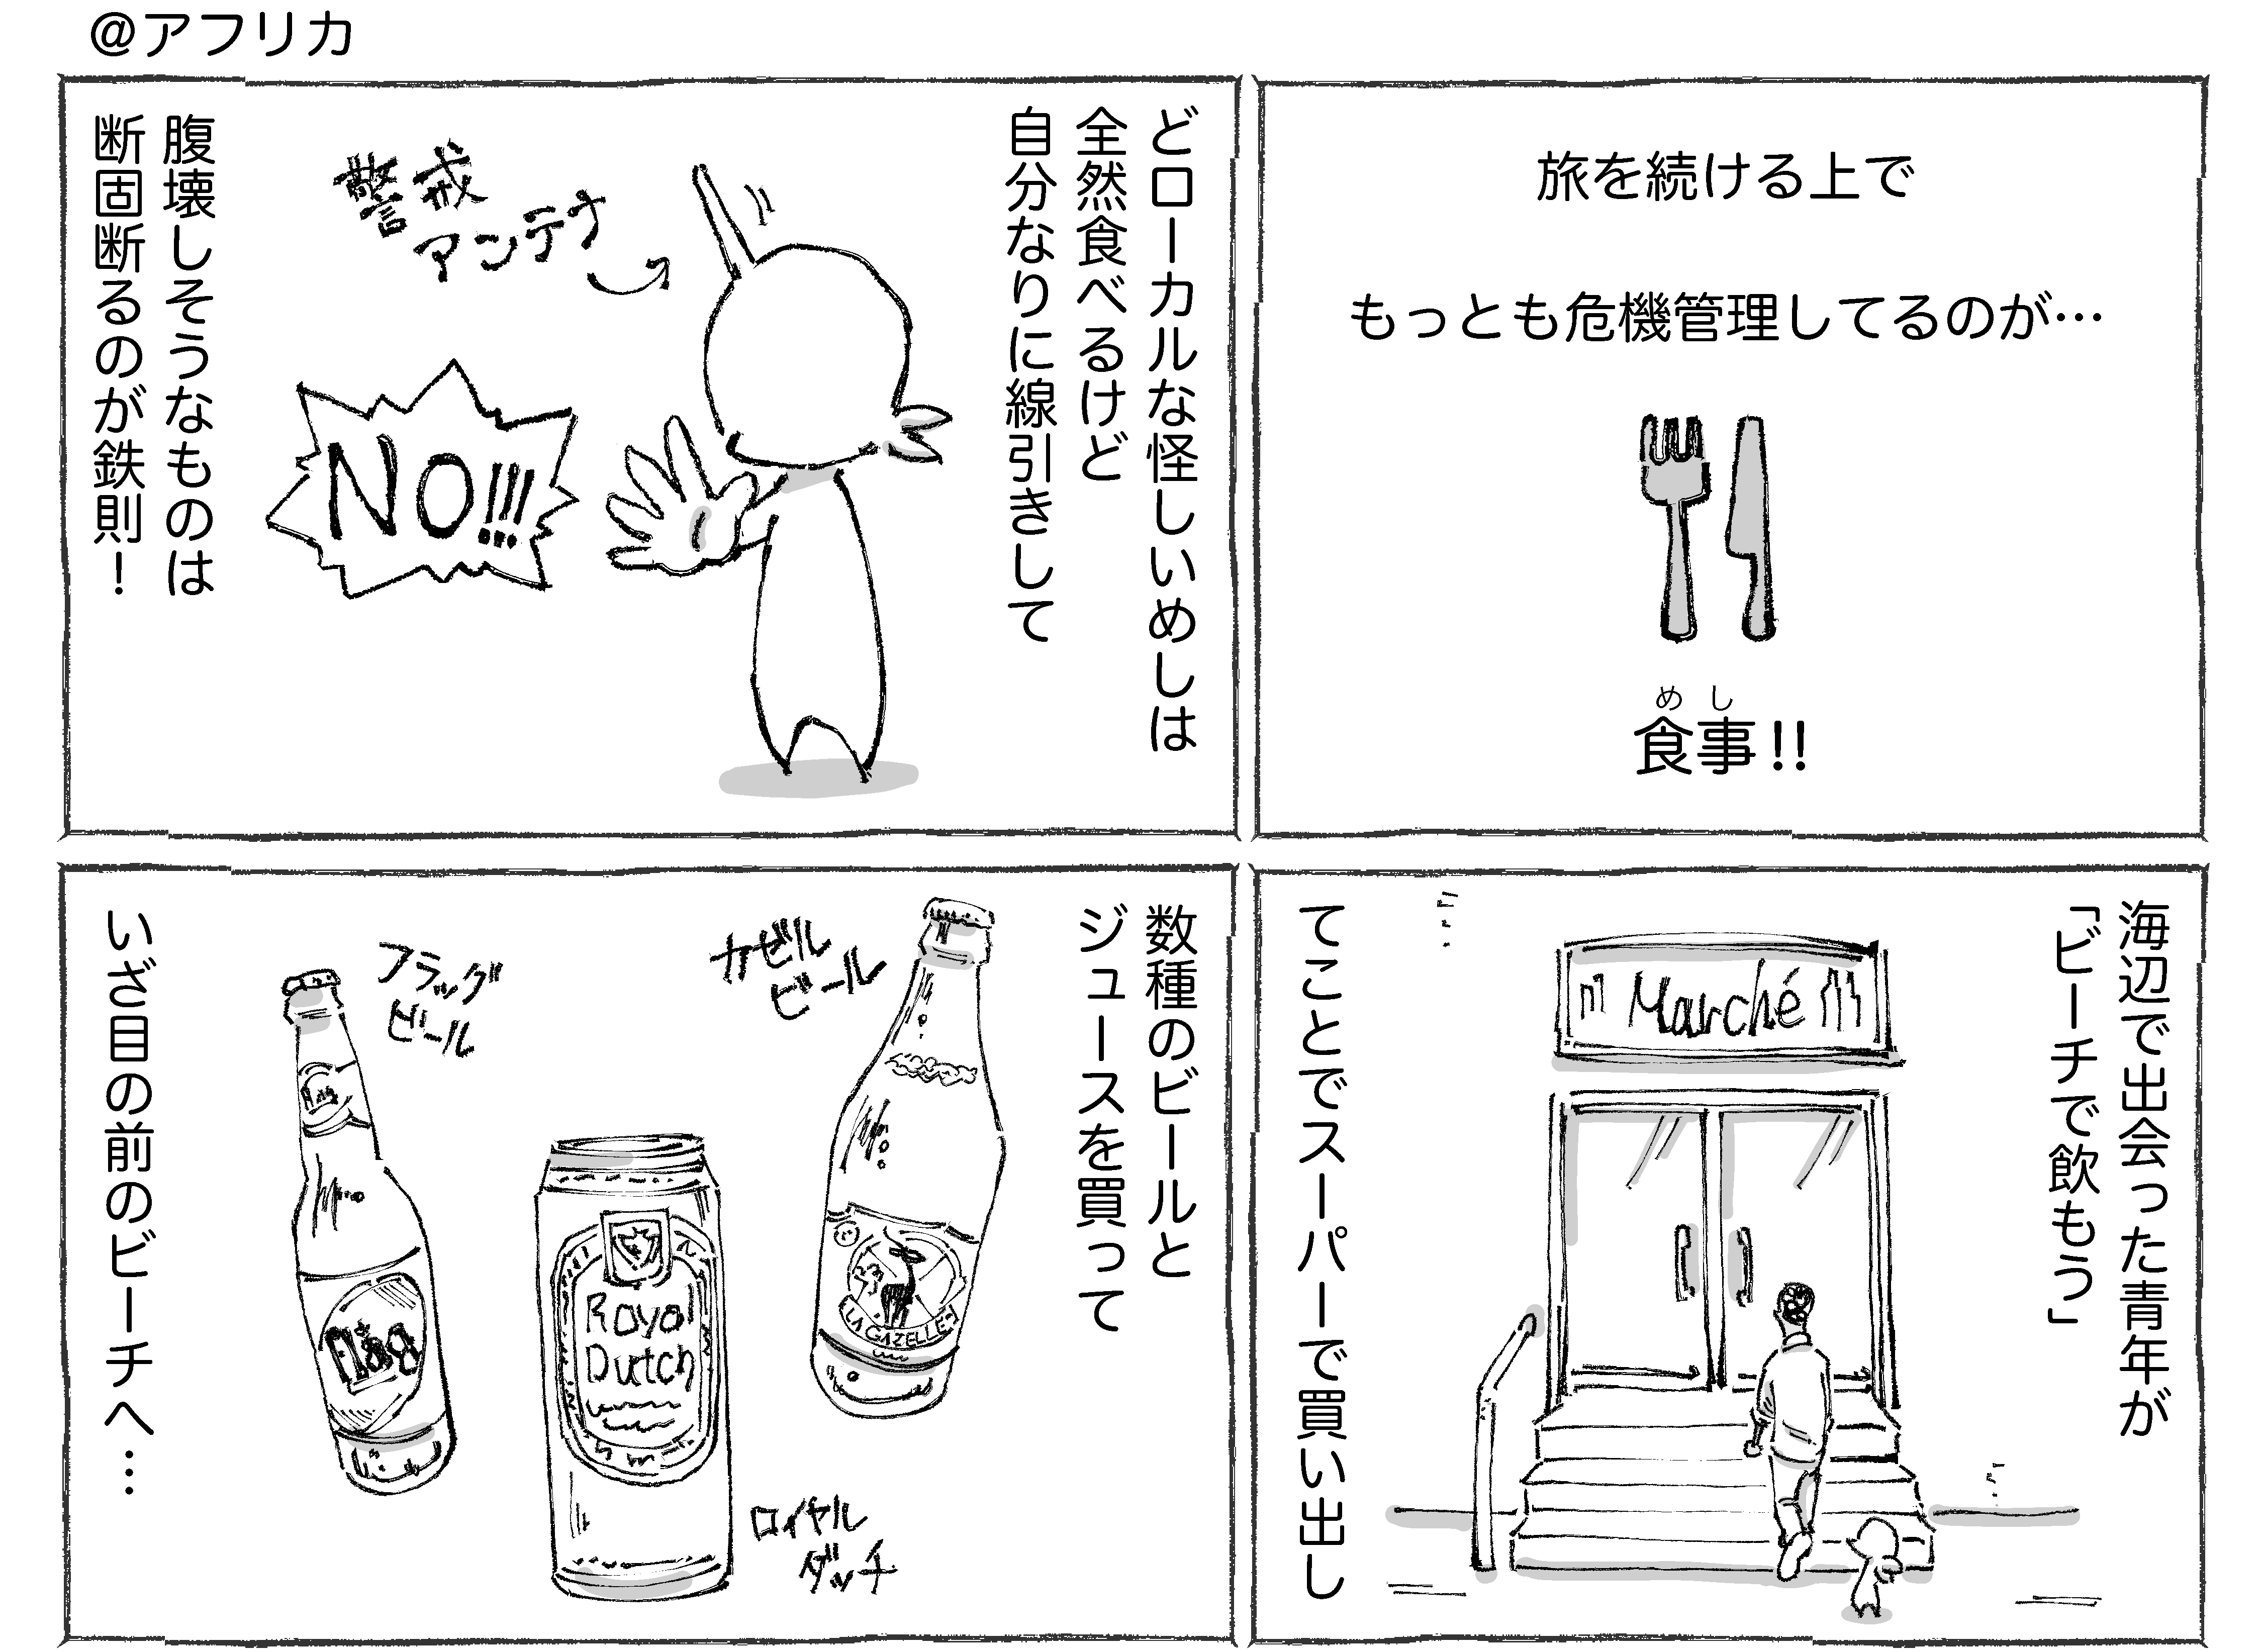 @アフリカ
旅を続ける上で
もっとも危機管理してるのが…
めし
食事!!
どローカルな怪しいめしは
全然食べるけど
自分なりに線引きして
警戒
アンテナ
NO!!!
腹壊しそうなものは
断固断るのが鉄則！
海辺で出会った青年が
「ビーチで飲もう」
Marché
てことでスーパーで買い出し
数種のビールと
ジュースを買って
カゼル
ビール
LA GAZELLE
フラッグ
ビール
Flag
Flag
Royal
Dutch
ロイヤル
ダッチ
いざ目の前のビーチへ…